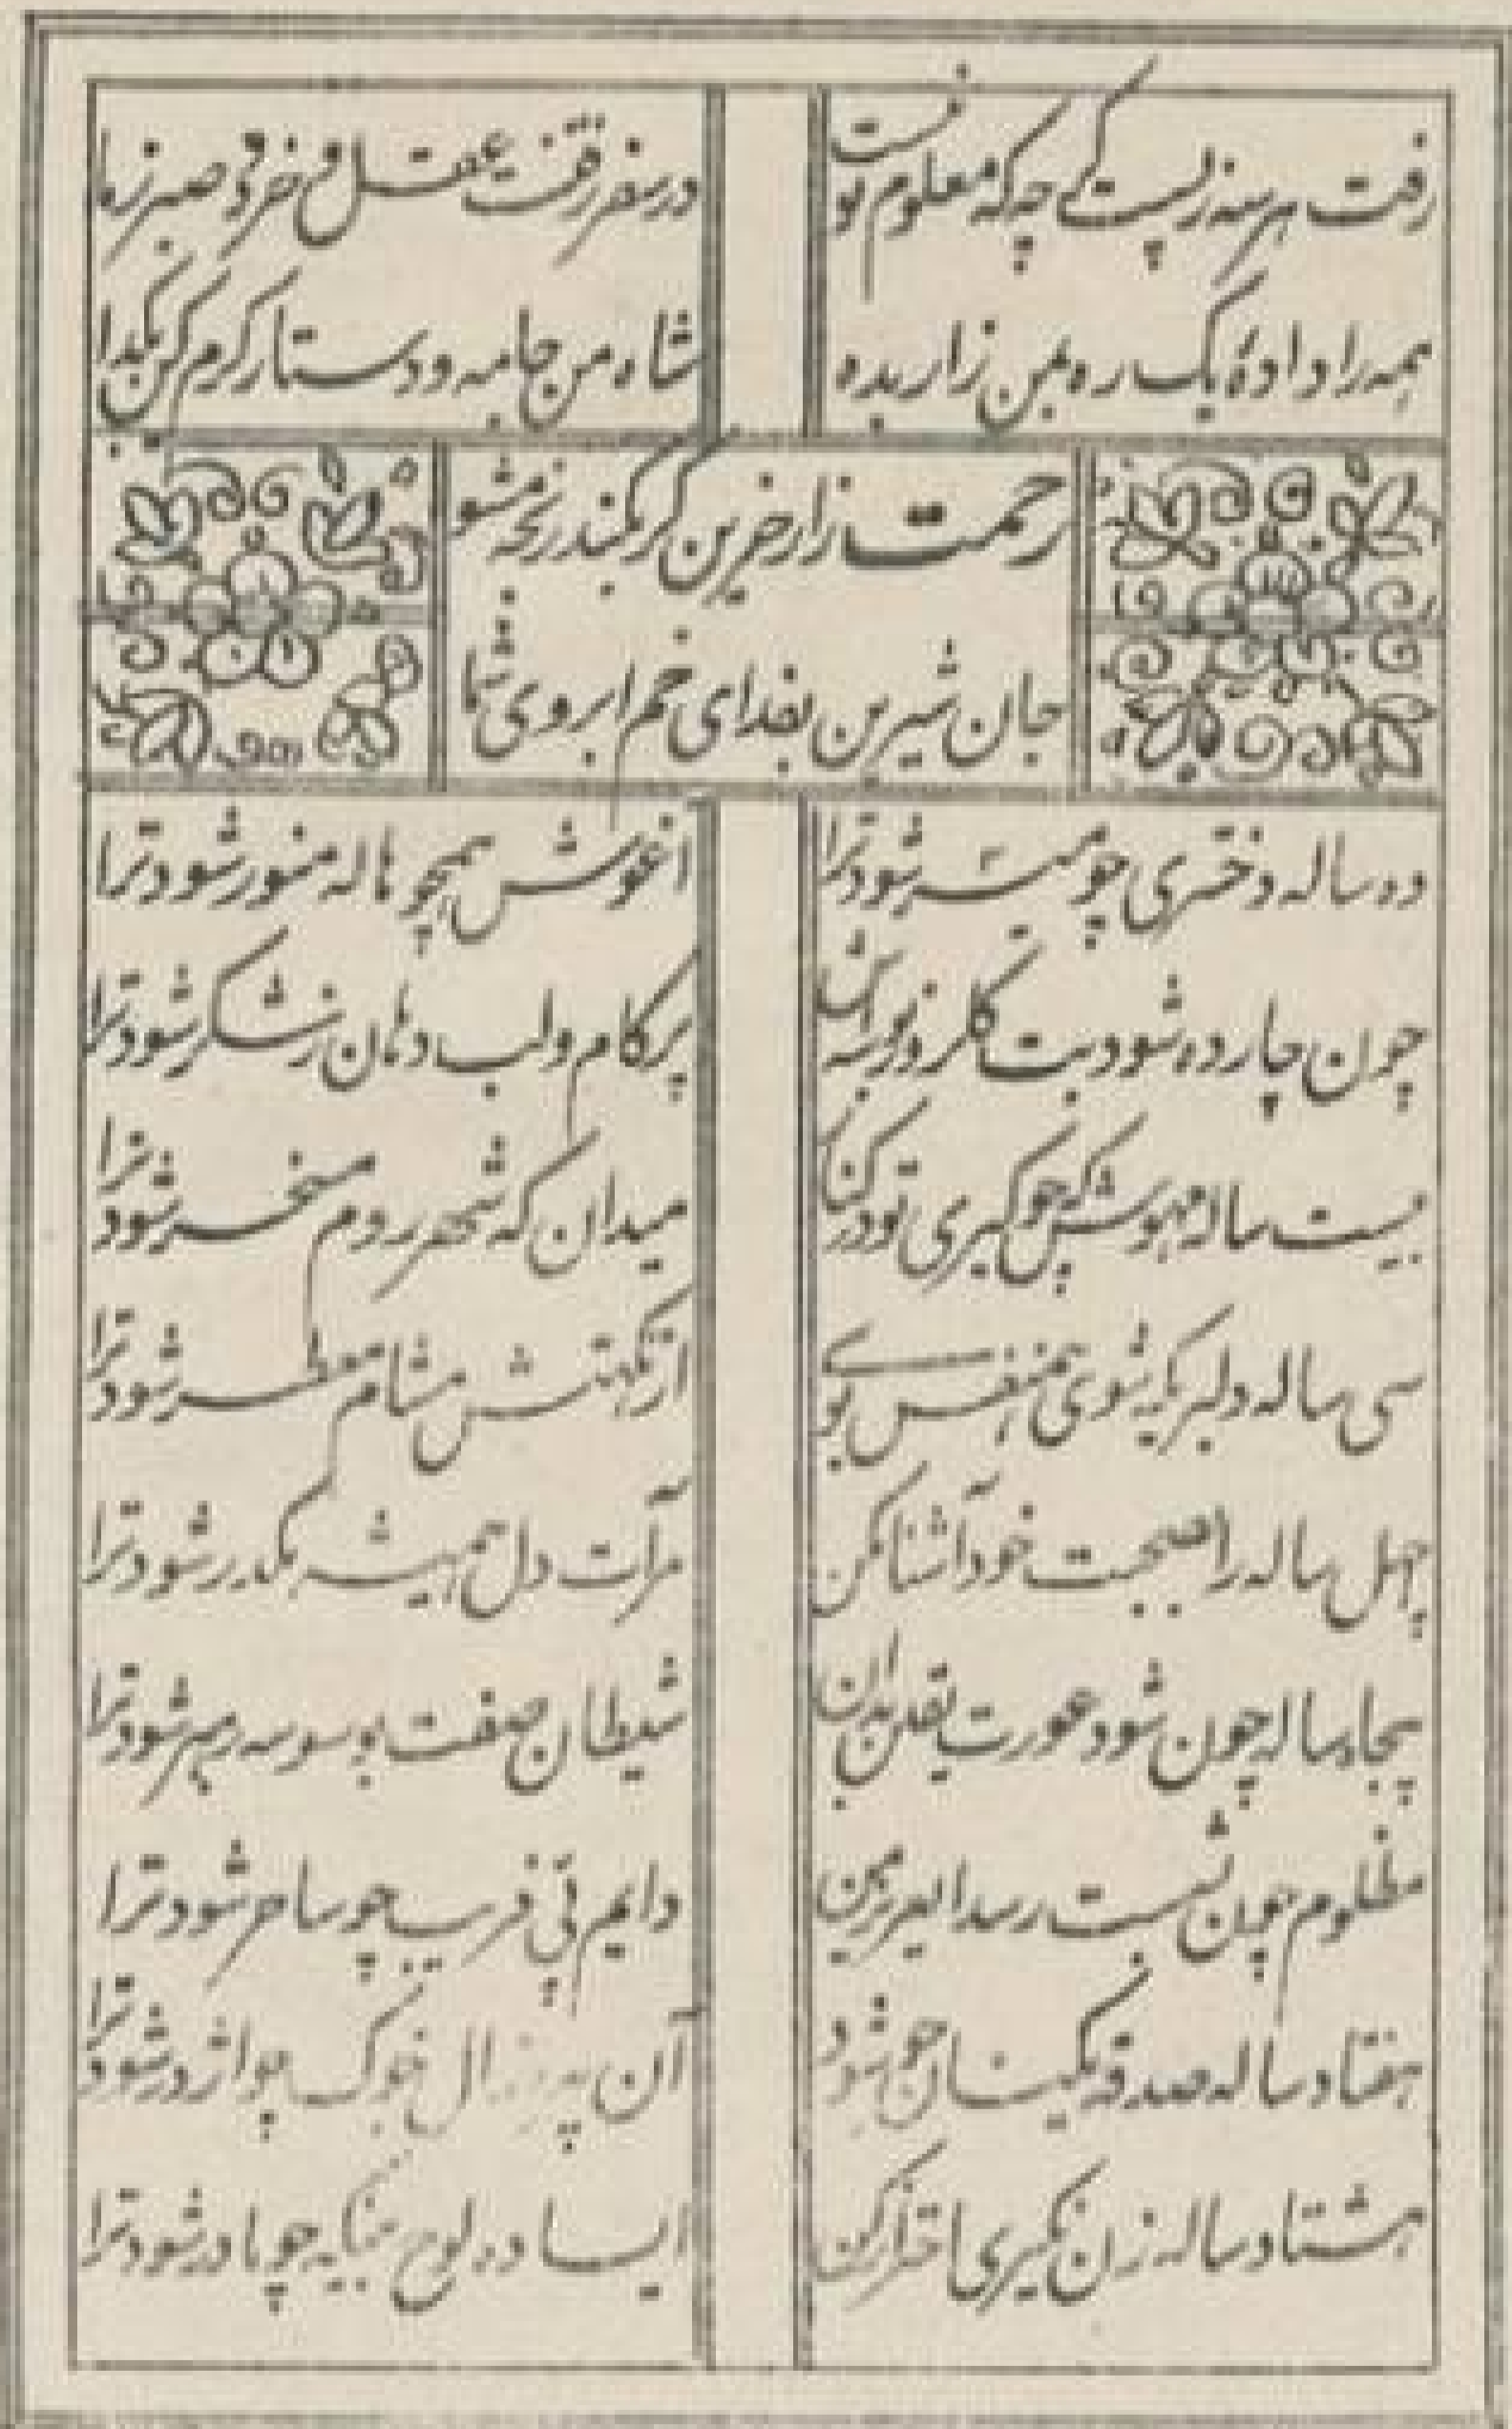 رفت هر سه ز پستی چه که معلوم نیست
در سفر رفت عقل و خرد و صبر ز ما
همه را دادۀ یک ره بمن زار بده
شاه من جامه و دستار کرم کن بگدا
رحمت زار حزین گر بکند رنجه مشو
جان شیرین بفدای خم ابروی شما
ده ساله دختری چو میسر شود ترا
آغوش همچو هاله منور شود ترا
چون چارده شود بت گلرو ز بوسه اش
پر کام و لب دهان ز شکر شود ترا
بیست ساله مهوش که چو گیری تو در کنار
میدان که شهر روم مسخر شود ترا
سی ساله دلبر یکه شوی همنفس بوی
از نکهتش مشام معطر شود ترا
چهل ساله را بصحبت خود آشنا مکن
مرآت دل همیشه مکدر شود ترا
پنجاه ساله چون شود عورت یقین بدان
شیطان صفت بوسوسه رهبر شود ترا
مظلوم چون بشست رسد ای عزیز من
دایم پی فریب چو ساحر شود ترا
هفتاد ساله صدقه یکسان چو شود
آن پیر زال خوک چو اژدر شود ترا
هشتاد ساله زن نگیری احتراز کن
ای ساده لوح بمثابه چو مادر شود ترا